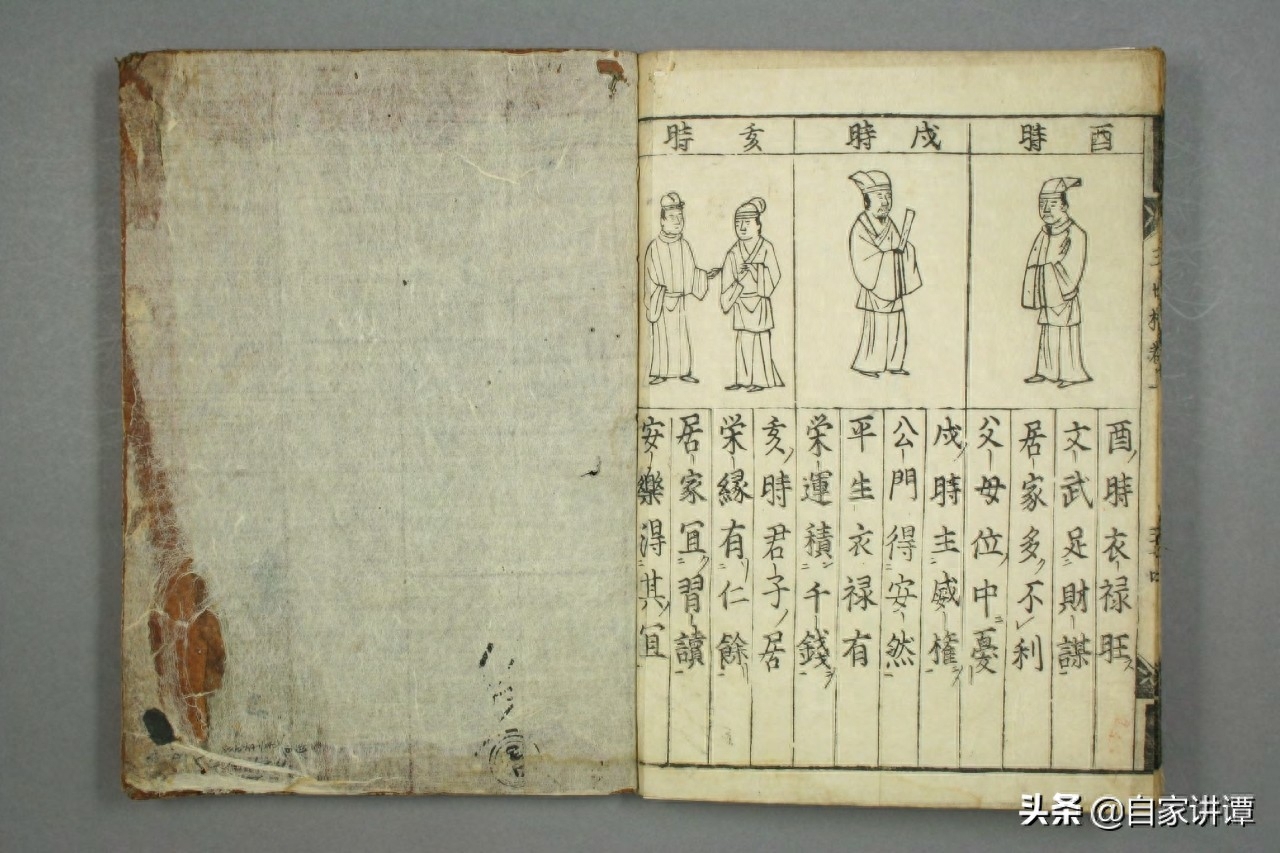 酉時
戌時
亥時
酉時衣禄旺
文武足財謀
居家多不利
父母位中憂
戌時主威權
公門得安然
平生衣禄有
栄運積千錢
亥時君子居
栄縁有仁餘
居家冝習讀
安樂得其冝
头条 @自家讲谭